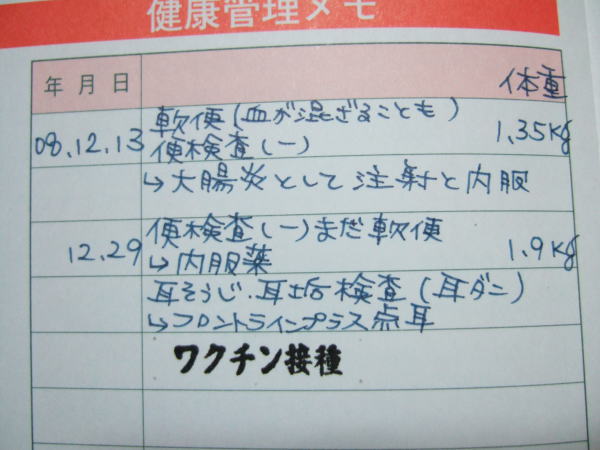 健康管理メモ
年月日 体重
軟便(血が混ざることも)
08.12.13 便検査(ー) 1.35kg
↳大腸炎として注射と内服
便検査(ー)まだ軟便
12.29 ↳内服薬 1.9kg
耳そうじ.耳垢検査(耳ダニ)
↳フロントラインプラス点耳
ワクチン接種